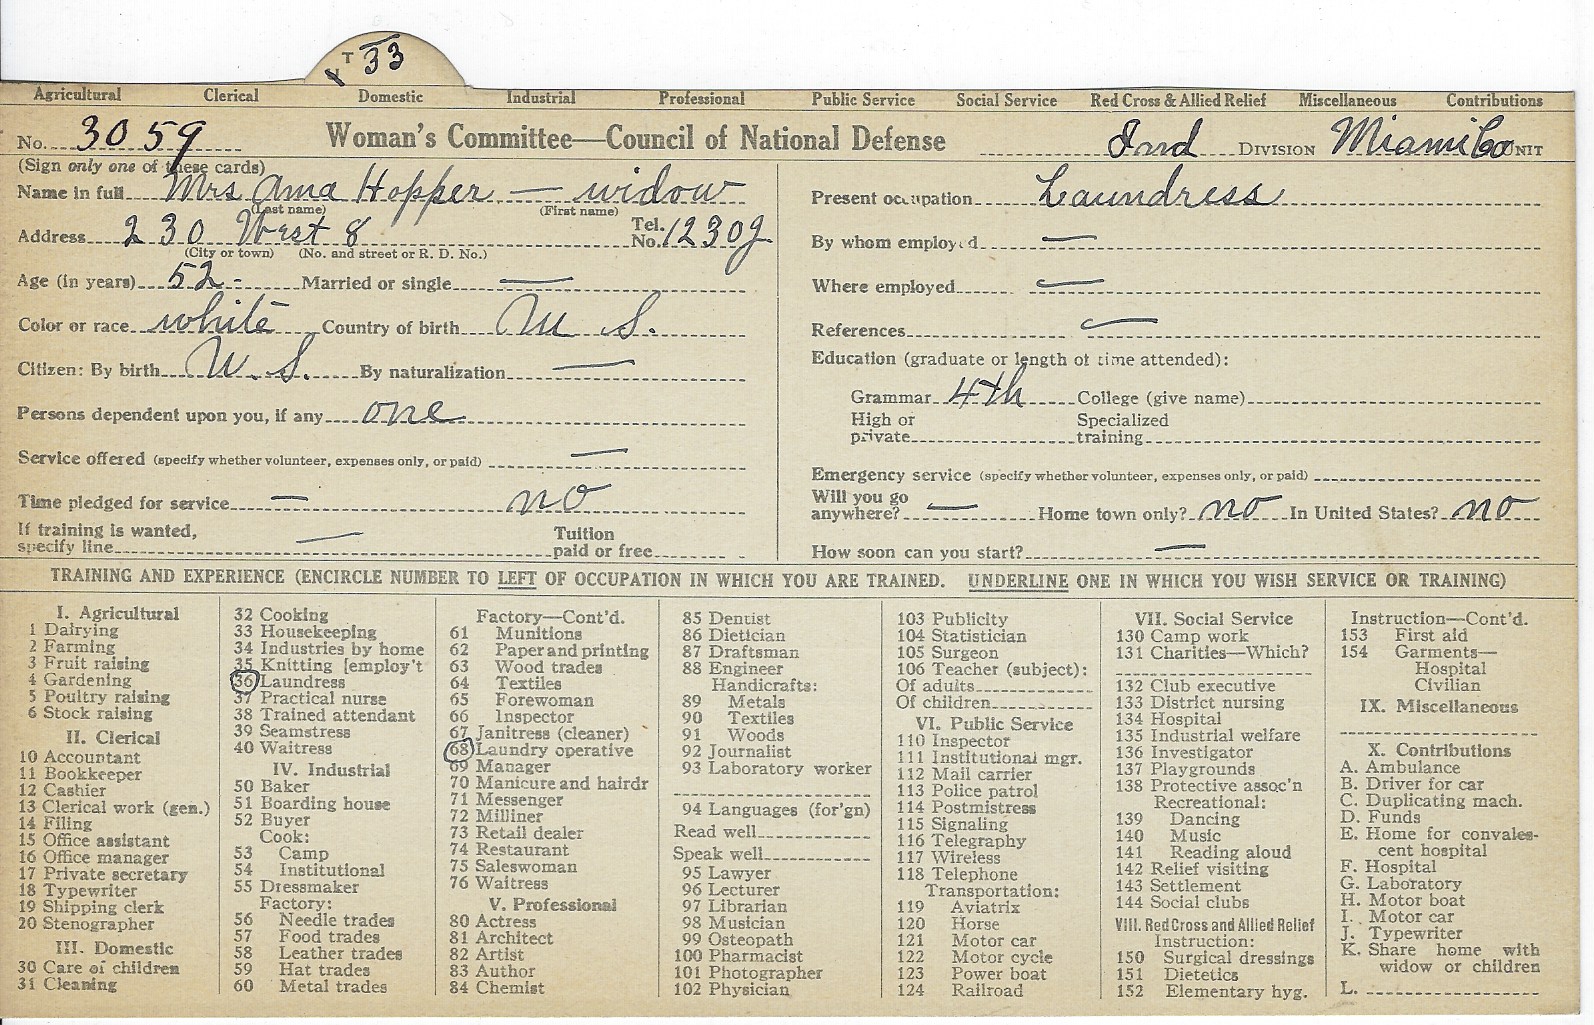 T 33
Agricultural Clerical Domestic Industrial Professional Public Service Social Service Red Cross & Allied Relief Miscellaneous Contributions
No. 3059 Woman's Committee—Council of National Defense Ind DIVISION Miami Co UNIT
(Sign only one of these cards)
Name in full Mrs Anna Hopper — widow
(Last name) (First name)
Address 230 West 8 Tel. No. 1230J
(City or town) (No. and street or R. D. No.)
Age (in years) 52 - Married or single —
Color or race white Country of birth U S.
Citizen: By birth U. S. By naturalization —
Persons dependent upon you, if any one
Service offered (specify whether volunteer, expenses only, or paid) —
Time pledged for service — no
If training is wanted, specify line — Tuition paid or free
Present occupation Laundress
By whom employed —
Where employed —
References —
Education (graduate or length of time attended):
Grammar 4th College (give name)
High or private Specialized training
Emergency service (specify whether volunteer, expenses only, or paid)
Will you go anywhere? — Home town only? no In United States? no
How soon can you start? —
TRAINING AND EXPERIENCE (ENCIRCLE NUMBER TO LEFT OF OCCUPATION IN WHICH YOU ARE TRAINED. UNDERLINE ONE IN WHICH YOU WISH SERVICE OR TRAINING)
I. Agricultural
1 Dairying
2 Farming
3 Fruit raising
4 Gardening
5 Poultry raising
6 Stock raising
II. Clerical
10 Accountant
11 Bookkeeper
12 Cashier
13 Clerical work (gen.)
14 Filing
15 Office assistant
16 Office manager
17 Private secretary
18 Typewriter
19 Shipping clerk
20 Stenographer
III. Domestic
30 Care of children
31 Cleaning
32 Cooking
33 Housekeeping
34 Industries by home
35 Knitting [employ't
36 Laundress
37 Practical nurse
38 Trained attendant
39 Seamstress
40 Waitress
IV. Industrial
50 Baker
51 Boarding house
52 Buyer
Cook:
53 Camp
54 Institutional
55 Dressmaker
Factory:
56 Needle trades
57 Food trades
58 Leather trades
59 Hat trades
60 Metal trades
Factory—Cont'd.
61 Munitions
62 Paper and printing
63 Wood trades
64 Textiles
65 Forewoman
66 Inspector
67 Janitress (cleaner)
68 Laundry operative
69 Manager
70 Manicure and hairdr
71 Messenger
72 Milliner
73 Retail dealer
74 Restaurant
75 Saleswoman
76 Waitress
V. Professional
80 Actress
81 Architect
82 Artist
83 Author
84 Chemist
85 Dentist
86 Dietician
87 Draftsman
88 Engineer
Handicrafts:
89 Metals
90 Textiles
91 Woods
92 Journalist
93 Laboratory worker
94 Languages (for'gn)
Read well
Speak well
95 Lawyer
96 Lecturer
97 Librarian
98 Musician
99 Osteopath
100 Pharmacist
101 Photographer
102 Physician
103 Publicity
104 Statistician
105 Surgeon
106 Teacher (subject):
Of adults
Of children
VI. Public Service
110 Inspector
111 Institutional mgr.
112 Mail carrier
113 Police patrol
114 Postmistress
115 Signaling
116 Telegraphy
117 Wireless
118 Telephone
Transportation:
119 Aviatrix
120 Horse
121 Motor car
122 Motor cycle
123 Power boat
124 Railroad
VII. Social Service
130 Camp work
131 Charities—Which?
132 Club executive
133 District nursing
134 Hospital
135 Industrial welfare
136 Investigator
137 Playgrounds
138 Protective assoc'n
Recreational:
139 Dancing
140 Music
141 Reading aloud
142 Relief visiting
143 Settlement
144 Social clubs
VIII. Red Cross and Allied Relief
Instruction:
150 Surgical dressings
151 Dietetics
152 Elementary hyg.
Instruction—Cont'd.
153 First aid
154 Garments—
Hospital
Civilian
IX. Miscellaneous
X. Contributions
A. Ambulance
B. Driver for car
C. Duplicating mach.
D. Funds
E. Home for convales-
cent hospital
F. Hospital
G. Laboratory
H. Motor boat
I. Motor car
J. Typewriter
K. Share home with
widow or children
L.